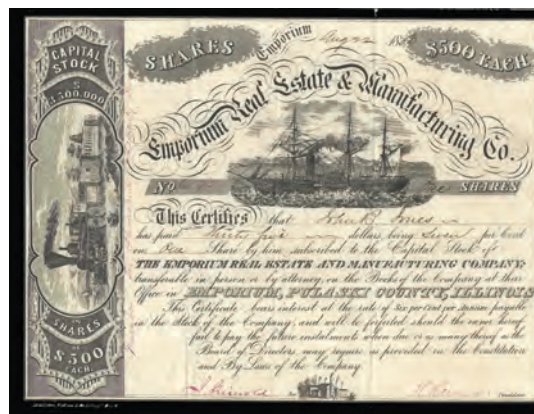 CAPITAL
STOCK
$
3,500,000
IN
SHARES
OF
$500
EACH.
SHARES
$500 EACH.
Emporium Aug 22 185
Emporium Real Estate & Manufacturing Co.
No
SHARES
This Certifies that John R. Jones
has paid thirty five dollars being Seven per Cent
on One Share by him subscribed to the Capital Stock of
THE EMPORIUM REAL ESTATE AND MANUFACTURING COMPANY;
transferable in person or by attorney on the Books of the Company at their
Office in EMPORIUM, PULASKI COUNTY, ILLINOIS
This Certificate bears interest at the rate of Six per Cent per annum payable
in the Stock of the Company; and will be forfeited should the same hereof
fail to pay the future instalments when due or as many thereof as the
Board of Directors may require as provided in the Constitution
and By-Laws of the Company.
J. Griswold Sec